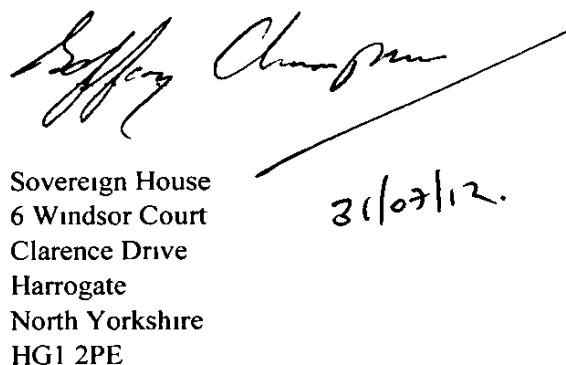 Geoffrey Champion
Sovereign House
31/07/12.
6 Windsor Court
Clarence Drive
Harrogate
North Yorkshire
HG1 2PE